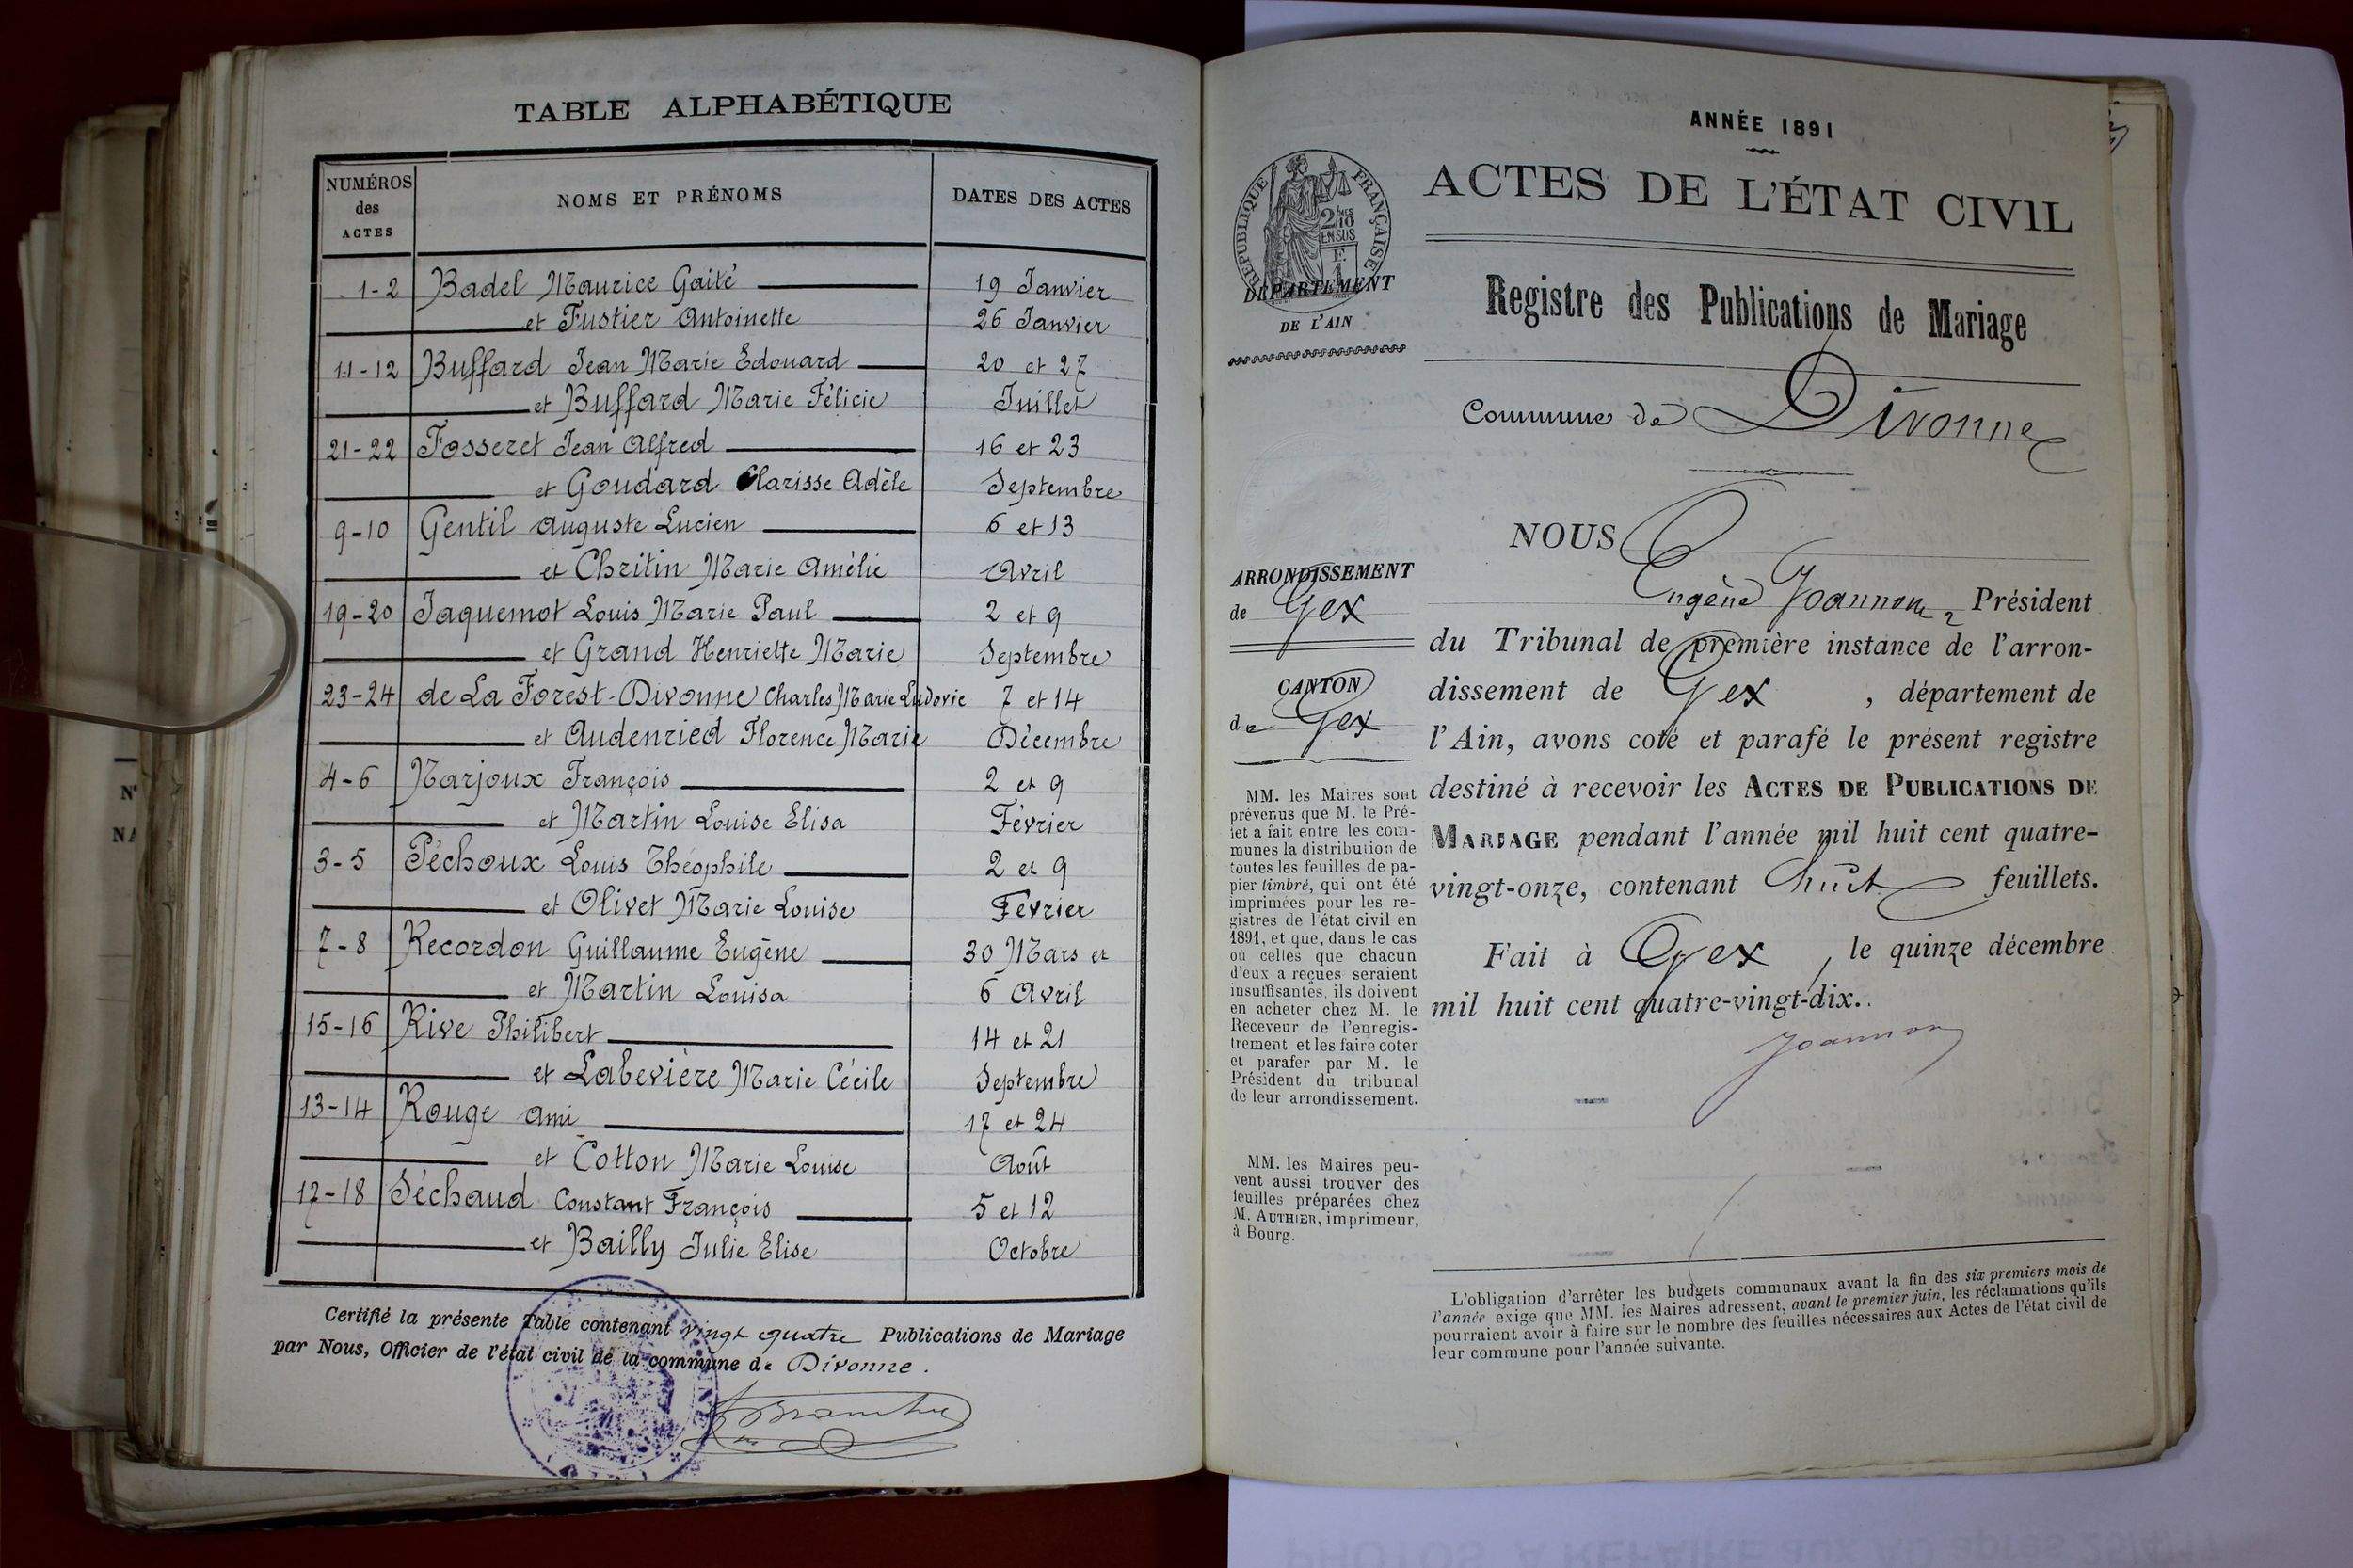 TABLE ALPHABÉTIQUE
NUMÉROS des ACTES NOMS ET PRÉNOMS DATES DES ACTES
1-2 Badel Maurice Gaité 19 Janvier
et Fustier Antoinette 26 Janvier
11-12 Buffard Jean Marie Edouard 20 et 27
et Buffard Marie Félicie Juillet
21-22 Fosseret Jean Alfred 16 et 23
et Goudard Clarisse Adèle Septembre
9-10 Gentil Auguste Lucien 6 et 13
et Chritin Marie Amélie Avril
19-20 Jaquemot Louis Marie Paul 2 et 9
et Grand Henriette Marie Septembre
23-24 de La Forest-Divonne Charles Marie Ludovic 7 et 14
et Audenried Florence Marie Décembre
4-6 Narjoux François 2 et 9
et Martin Louise Elisa Février
3-5 Péchoux Louis Théophile 2 et 9
et Olivet Marie Louise Février
7-8 Recordon Guillaume Eugène 30 Mars et
et Martin Louisa 6 Avril
15-16 Rive Philibert 14 et 21
et Labevière Marie Cécile Septembre
13-14 Rouge Ami 17 et 24
et Cotton Marie Louise Août
17-18 Séchaud Constant François 5 et 12
et Bailly Julie Elise Octobre
Certifié la présente Table contenant vingt quatre Publications de Mariage
par Nous, Officier de l'état civil de la commune de Divonne.
ANNÉE 1891
ACTES DE L'ÉTAT CIVIL
RÉPUBLIQUE FRANÇAISE
2/10 EN SUS
DÉPARTEMENT
DE L'AIN
Registre des Publications de Mariage
Commune de Divonne
ARRONDISSEMENT
de Gex
CANTON
de Gex
MM. les Maires sont
prévenus que M. le Pré-
fet a fait entre les com-
munes la distribution de
toutes les feuilles de pa-
pier timbré, qui ont été
imprimées pour les re-
gistres de l'état civil en
1891, et que, dans le cas
où celles que chacun
d'eux a reçues seraient
insuffisantes, ils doivent
en acheter chez M. le
Receveur de l'enregis-
trement et les faire coter
et parafer par M. le
Président du tribunal
de leur arrondissement.
MM. les Maires peu-
vent aussi trouver des
feuilles préparées chez
M. AUTHIER, imprimeur,
à Bourg.
NOUS
Eugène Joannon, Président
du Tribunal de première instance de l'arron-
dissement de Gex, département de
l'Ain, avons coté et parafé le présent registre
destiné à recevoir les ACTES DE PUBLICATIONS DE
MARIAGE pendant l'année mil huit cent quatre-
vingt-onze, contenant huit feuillets.
Fait à Gex, le quinze décembre
mil huit cent quatre-vingt-dix.
Joannon
L'obligation d'arrêter les budgets communaux avant la fin des six premiers mois de
l'année exige que MM. les Maires adressent, avant le premier juin, les réclamations qu'ils
pourraient avoir à faire sur le nombre des feuilles nécessaires aux Actes de l'état civil de
leur commune pour l'année suivante.